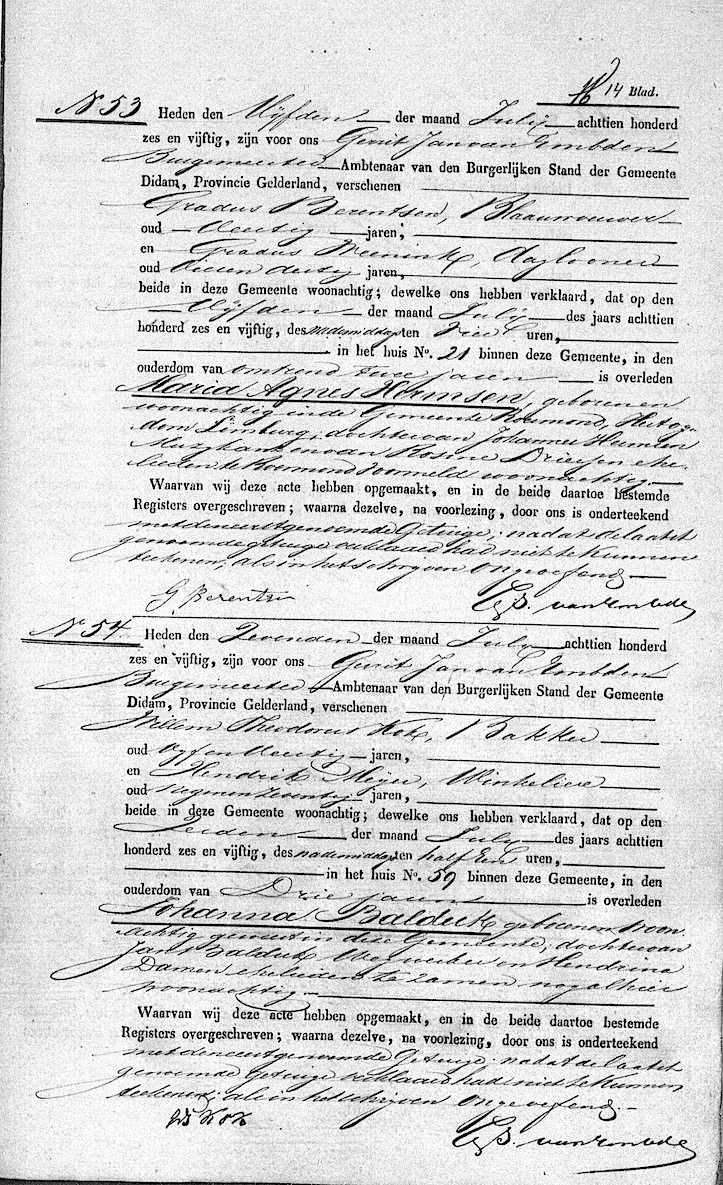 14 Blad.
N 53 Heden den Vijfden der maand July achttien honderd
zes en vijftig, zijn voor ons Gerrit Jan van Embden
Burgemeester Ambtenaar van den Burgerlijken Stand der Gemeente
Didam, Provincie Gelderland, verschenen
Gradus Berentsen, Blaauwverver
oud dertig jaren;
en Gradus Weenink, Daglooner
oud jaren,
beide in deze Gemeente woonachtig; dewelke ons hebben verklaard, dat op den
Vijfden der maand July des jaars achttien
honderd zes en vijftig, des namiddags ten vier uren,
in het huis No. 21 binnen deze Gemeente, in den
ouderdom van omtrent twee jaren is overleden
Maria Agnes Hermsen, geboren en
woonachtig in de Gemeente Roermond, Hertog-
dom Limburg, dochter van Johannes Hermsen
Muzykant en van Driesen ehe-
lieden te Roermond voormeld woonachtig
Waarvan wij deze acte hebben opgemaakt, en in de beide daartoe bestemde
Registers overgeschreven; waarna dezelve, na voorlezing, door ons is onderteekend
met den eerstgenoemde Getuige; nadat de laatst
genoemde getuige verklaard had niet te kunnen
teekenen, als in het schryven ongeoefend
G Berentsen G. J. van Embden
No 54. Heden den Zevenden der maand July achttien honderd
zes en vijftig, zijn voor ons Gerrit Jan van Embden
Burgemeester Ambtenaar van den Burgerlijken Stand der Gemeente
Didam, Provincie Gelderland, verschenen
Willem Theodorus Kok, Bakker
oud vyf en dertig jaren,
en Hendrik Meijer, Winkelier
oud negen en zeventig jaren,
beide in deze Gemeente woonachtig; dewelke ons hebben verklaard, dat op den
der maand July des jaars achttien
honderd zes en vijftig, des namiddags ten half een uren,
in het huis No. 59 binnen deze Gemeente, in den
ouderdom van Drie jaren is overleden
Johanna Balduk geboren en woon
achtig geweest in deze Gemeente, dochter van
Jan Balduk en Hendrina
Damen ehelieden te zamen nog alhier
woonachtig
Waarvan wij deze acte hebben opgemaakt, en in de beide daartoe bestemde
Registers overgeschreven; waarna dezelve, na voorlezing, door ons is onderteekend
met den eerstgenoemde Getuige; nadat de laatst
genoemde getuige verklaard had niet te kunnen
teekenen; als in het schrijven ongeoefend
Kok
G. J. van Embden